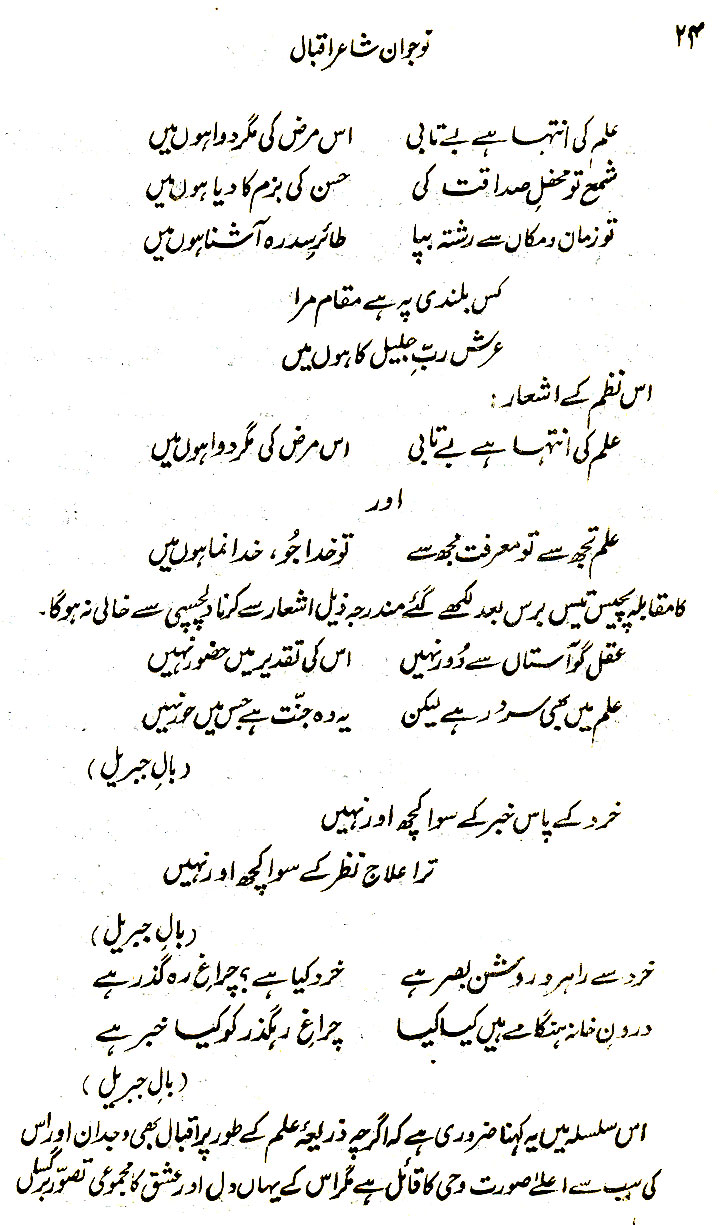 ۲۴
نوجوان شاعر اقبال
علم کی انتہا ہے بے تابی اس مرض کی مگر دوا ہوں میں
شمع تو محفلِ صداقت کی حسن کی بزم کا دیا ہوں میں
تو زمان و مکاں سے رشتہ بپا طائرِ سدرہ آشنا ہوں میں
کس بلندی پہ ہے مقام مرا
عرش ربِّ جلیل کا ہوں میں
اس نظم کے اشعار:
علم کی انتہا ہے بے تابی اس مرض کی مگر دوا ہوں میں
اور
علم تجھ سے تو معرفت مجھ سے تو خدا جُو، خدا نما ہوں میں
کا مقابلہ پچیس تیس برس بعد لکھے گئے مندرجہ ذیل اشعار سے کرنا دلچسپی سے خالی نہ ہوگا۔
عقل گو آستاں سے دُور نہیں اس کی تقدیر میں حضور نہیں
علم میں بھی سرور ہے لیکن یہ وہ جنّت ہے جس میں حور نہیں
(بالِ جبریل)
خرد کے پاس خبر کے سوا کچھ اور نہیں
ترا علاج نظر کے سوا کچھ اور نہیں
(بالِ جبریل)
خرد سے راہرو روشن بصر ہے خرد کیا ہے؟ چراغِ رہ گذر ہے
درونِ خانہ ہنگامے ہیں کیا کیا چراغِ رہگذر کو کیا خبر ہے
(بالِ جبریل)
اس سلسلہ میں یہ کہنا ضروری ہے کہ اگرچہ ذریعۂ علم کے طور پر اقبال بھی وجدان اور اس
کی سب سے اعلےٰ صورت وحی کا قائل ہے مگر اس کے یہاں دل اور عشق کا مجموعی تصوّر برگساں